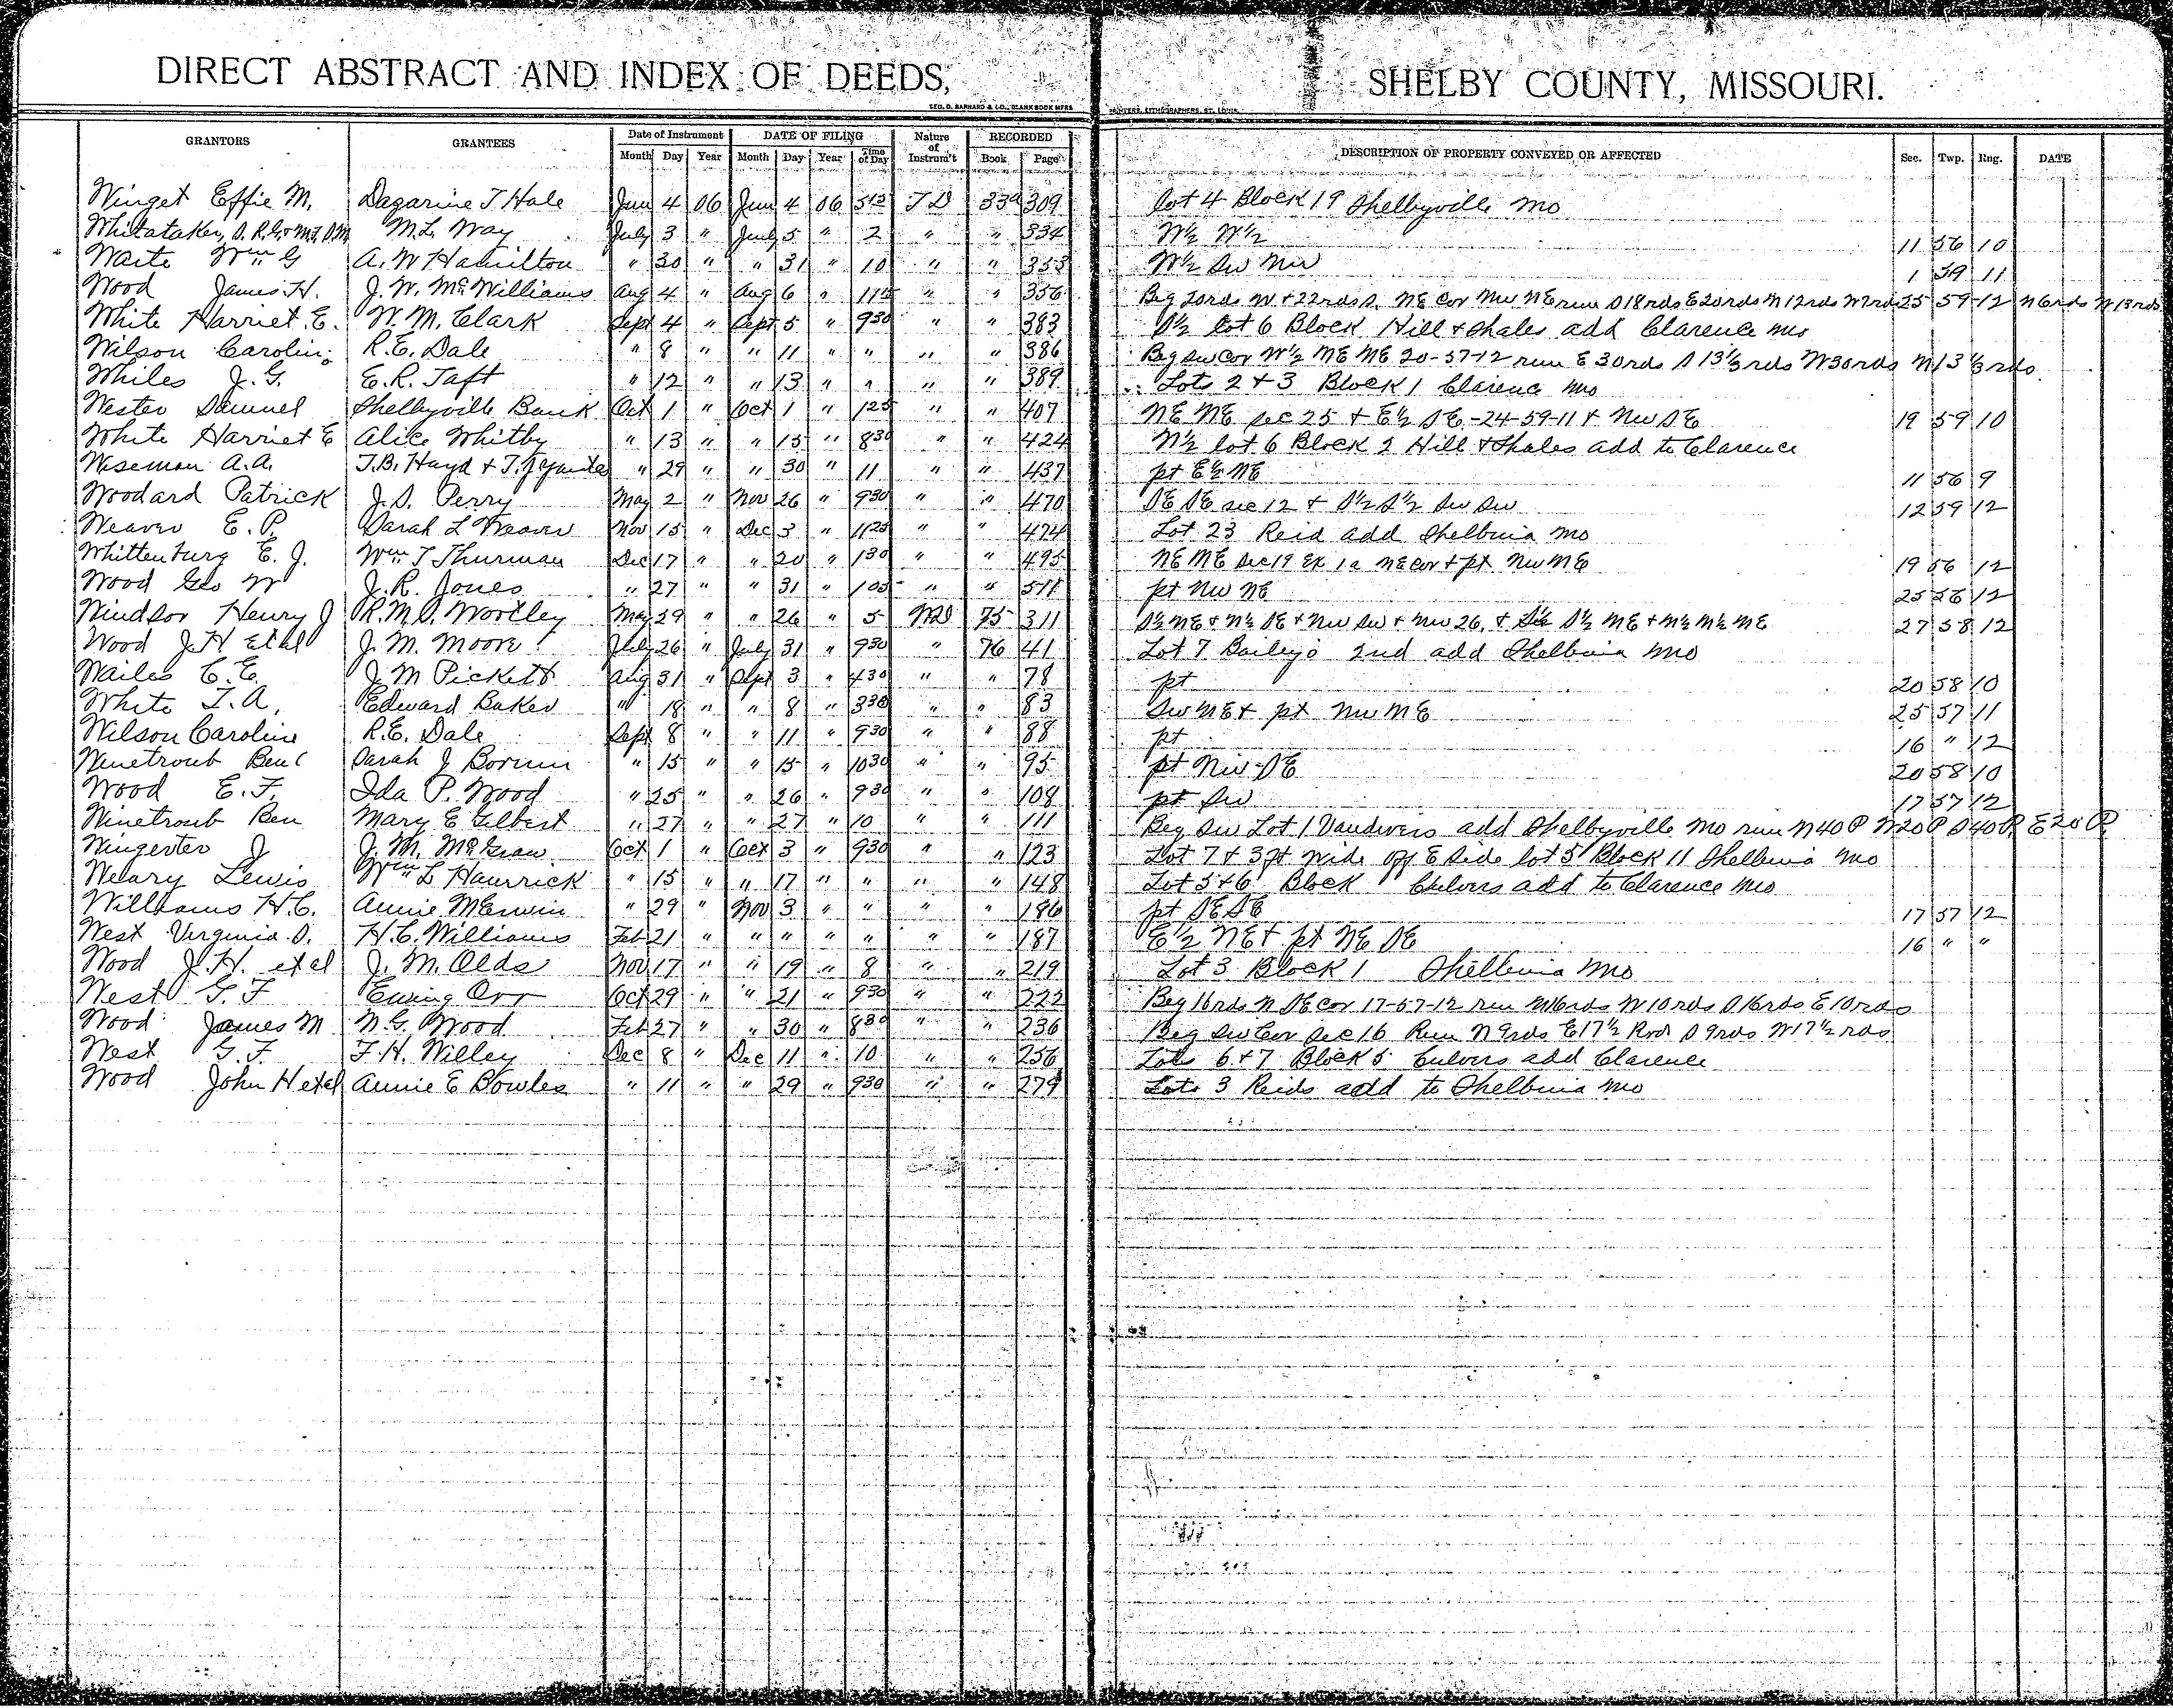 DIRECT ABSTRACT AND INDEX OF DEEDS, SHELBY COUNTY, MISSOURI.
GEO. D. BARNARD & CO., BLANK BOOK MFRS. PRINTERS, LITHOGRAPHERS, ST. LOUIS.
GRANTORS GRANTEES Date of Instrument DATE OF FILING Nature of Instrum't RECORDED DESCRIPTION OF PROPERTY CONVEYED OR AFFECTED Sec. Twp. Rng. DATE
Month Day Year Month Day Year Time of Day Book Page
Winget Effie M. Dagarine T Hale Jun 4 06 Jun 4 06 TD 309 lot 4 Block 19 Shelbyville Mo
Whitataker, M.L. Way July 3 " July 5 " 2 " " 334 W½ W½ 11 56 10
Waite Wm G A. W Hamilton " 30 " " 31 " 10 " " 353 W½ SW NW 1 59 11
Wood James H. J. W. McWilliams Aug 4 " Aug 6 " 115 " " 356 Beg 20rds W + 22rds S. NE Cor NW NE run S 18rds E 20rds N 12rds W 7rds 25 59 12 N 6rds W 13rds
White Harriet E. W. M. Clark Sept 4 " Sept 5 " 930 " " 383 S½ lot 6 Block Hill & Shales add Clarence Mo
Wilson Carolin R.E. Dale " 8 " " 11 " " " " 386 Beg SW Cor W½ NE NE 20-57-12 run E 30rds S 13⅓rds W 30rds N 13⅓rds
Whiles J. G. E. R. Taft " 12 " " 13 " " " " 389 Lots 2 + 3 Block 1 Clarence Mo
Wester Samuel Shelbyville Bank Oct 1 " Oct 1 " 125 " " 407 NE NE sec 25 + E½ SE-24-59-11 + NW SE 19 59 10
White Harriet E Alice Whitby " 13 " " 15 " 830 " " 424 N½ lot 6 Block 2 Hill & Shales add to Clarence
Wiseman A. A. T.B. Hayd & T. J " 29 " " 30 " 11 " " 437 pt E½ NE 11 56 9
Woodard Patrick J. S. Perry May 2 " Nov 26 " 930 " " 470 SE SE sec 12 + S½ S½ SW SW 12 59 12
Weaver E. P. Sarah L Weaver Nov 15 " Dec 3 " 1125 " " 474 Lot 23 Reid add Shelbina Mo
Whittenburg E. J. Wm T Thurman Dec 17 " " 20 " 130 " " 495 NE NE Sec 19 Ex 1a NE cor + pt NW NE 19 56 12
Wood Geo W J. R. Jones " 27 " " 31 " 105 " " 511 pt NW NE 25 56 12
Windsor Henry J R. M. S. Worlley May 29 " " 26 " 5 WD 75 311 S½ NE + N½ SE + NW SW + NW 26, + S½ S½ NE + N½ N½ NE 27 58 12
Wood J H Etal J. M. Moore July 26 " July 31 " 930 " 76 41 Lot 7 Bailey's 2nd add Shelbina Mo
Wailes C. E. J. M Pickett Aug 31 " Sept 3 " 430 " " 78 pt 20 58 10
White T. A. Edward Baker " 18 " " 8 " 330 " " 83 SW NE + pt NW NE 25 57 11
Wilson Caroline R.E. Dale Sept 8 " " 11 " 930 " " 88 pt 16 " 12
Winetroub Ben Sarah J " 15 " " 15 " 1030 " " 95 pt NW SE 20 58 10
Wood E. F. Ida P. Wood " 25 " " 26 " 930 " " 108 pt SW 17 57 12
Winetroub Ben Mary E Gilbert " 27 " " 27 " 10 " " 111 Beg SW Lot 1 Vandivers add Shelbyville Mo run N 40 P W 20 P S 40 P E 20 P
Wingerter J J. M. McGraw Oct 1 " Oct 3 " 930 " " 123 Lot 7 + 3 ft wide off E side lot 5 Block 11 Shelbina Mo
Weary Lewis Wm L Hawrick " 15 " " 17 " " " " 148 Lot 5 + 6 Block Culvers add to Clarence Mo
Williams H. C. Annie McErwin " 29 " Nov 3 " " " " 186 pt SE SE 17 57 12
West Virginia S. H. C. Williams Feb 21 " " " " " " " 187 E½ NE + pt NE SE 16 " "
Wood J. H. et al J. M. Olds Nov 17 " " 19 " 8 " " 219 Lot 3 Block 1 Shelbina Mo
West G. F Ewing Orr Oct 29 " " 21 " 930 " " 222 Beg 16rds N SE cor 17-57-12 run N 16rds W 10rds S 16rds E 10rds
Wood James M N. G. Wood Feb 27 " " 30 " 830 " " 236 Beg SW Cor Sec 16 Run N 9rds E 17½ Rods S 9rds W 17½ rds
West G. F. F. H. Willey Dec 8 " Dec 11 " 10 " " 256 Lots 6 + 7 Block 5 Culvers add Clarence
Wood John H etal Annie E Bowles " 11 " " 29 " 930 " " 279 Lots 3 Reids add to Shelbina Mo